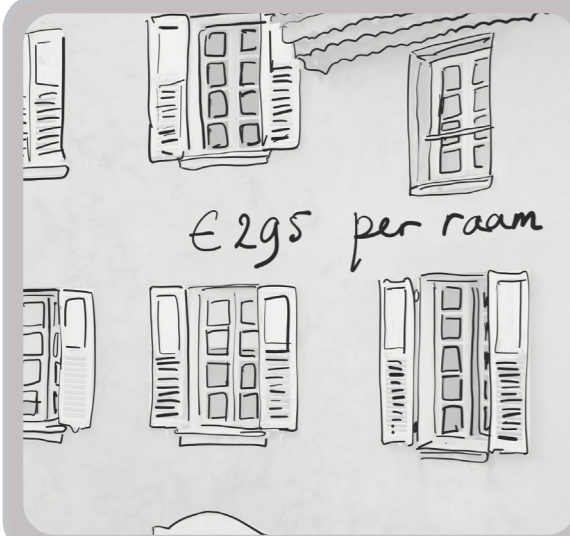 € 295 per raam